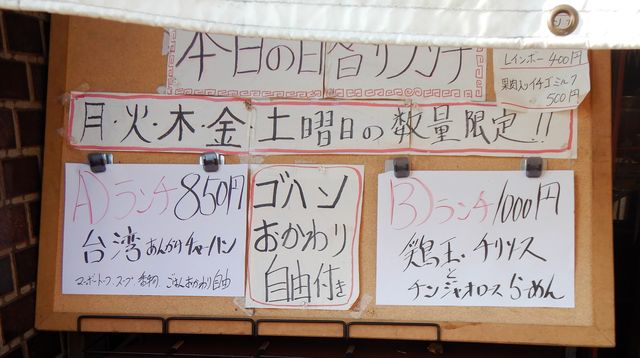 本日の日替リランチ
レインボー 400円
果肉入イチゴミルク
500円
月・火・木・金 土曜日の数量限定!!
A)ランチ 850円
台湾あんかけチャーハン
マーボートーフ、スープ、香物、ごはんおかわり自由
ゴハン
おかわり
自由付き
B)ランチ 1000円
鶏玉・チリソース
と
チンジャオロースらーめん